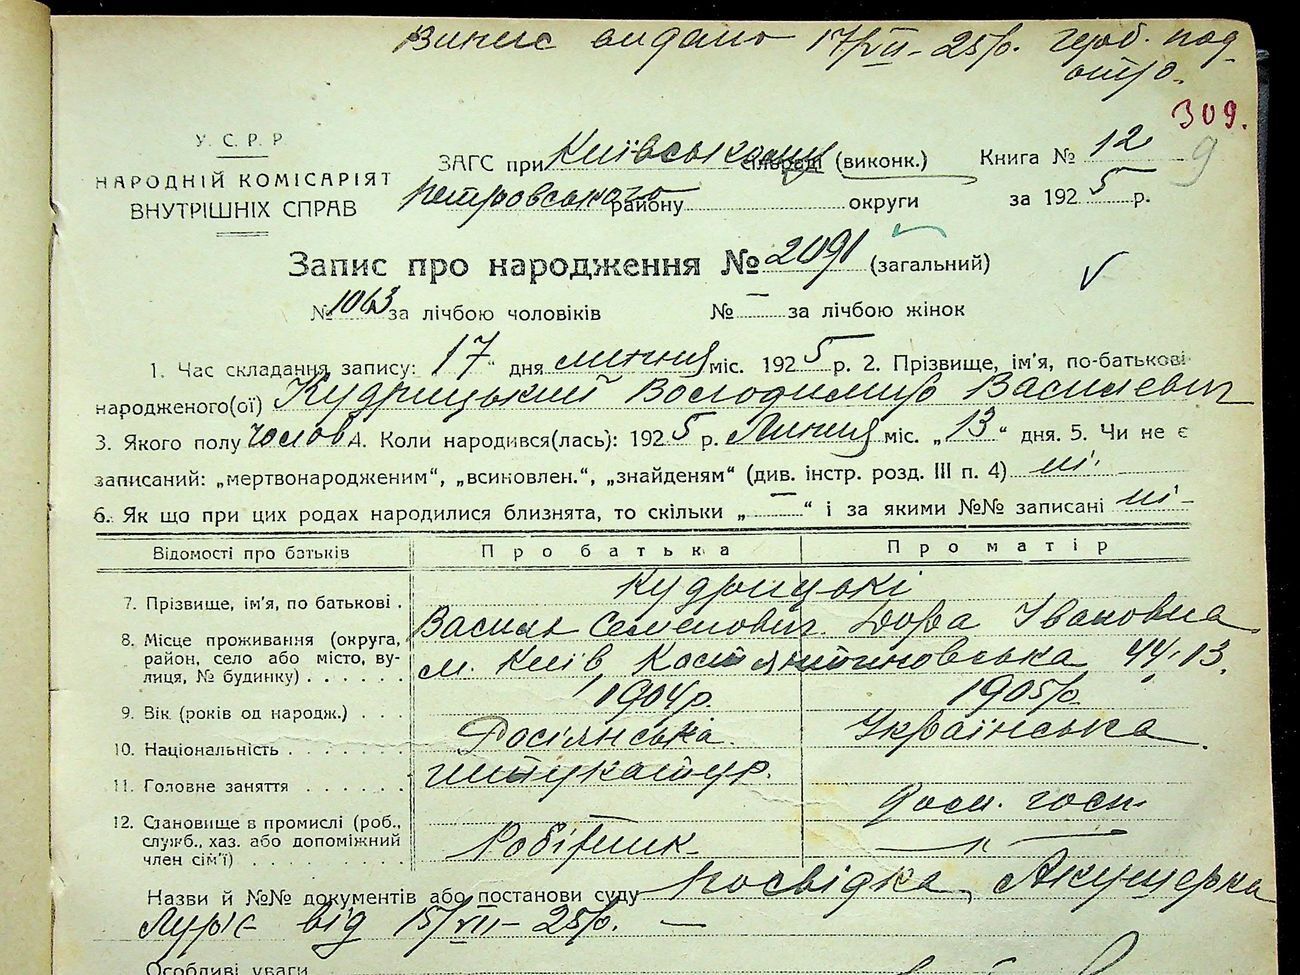 Випис видано 17/VII-25р. герб. под
309.
У. С. Р. Р.
НАРОДНІЙ КОМІСАРІЯТ
ВНУТРІШНІХ СПРАВ
ЗАГС при Київському сільраді (виконк.)
Петровського району округи
Книга № 12 9
за 1925 р.
Запис про народження № 2091 (загальний)
№ 1063 за лічбою чоловіків № — за лічбою жінок
1. Час складання запису: „17“ дня липня міс. 1925 р. 2. Прізвище, ім'я, по-батькові
народженого(ої) Кудрицький Володимир Василевич
3. Якого полу чолов 4. Коли народився(лась): 1925 р. Липня міс. „13“ дня. 5. Чи не є
записаний: „мертвонародженим“, „всиновлен.“, „знайденям“ (див. інстр. розд. III п. 4) ні.
6. Як що при цих родах народилися близнята, то скільки „—“ і за якими №№ записані ні-
Відомості про батьків Про батька Про матір
7. Прізвище, ім'я, по батькові . Кудрицькі
Василь Семенович. Дора Івановна
8. Місце проживання (округа,
район, село або місто, ву-
лиця, № будинку) . . . . . . м. Київ, Костянтиновська 44, 13.
9. Вік (років од народж.) . . . 1904р. 1905р.
10. Національність . . . . . . . Росіянська. Українська.
11. Головне заняття . . . . . . штукатур. дом. госп.
12. Становище в промислі (роб.,
служб., хаз. або допоміжний
член сім'ї) . . . . . . . . . . Робітник — " —
Назви й №№ документів або постанови суду посвідка, Акушерка
Лур'є від 15/VII-25р. —
Особливі уваги